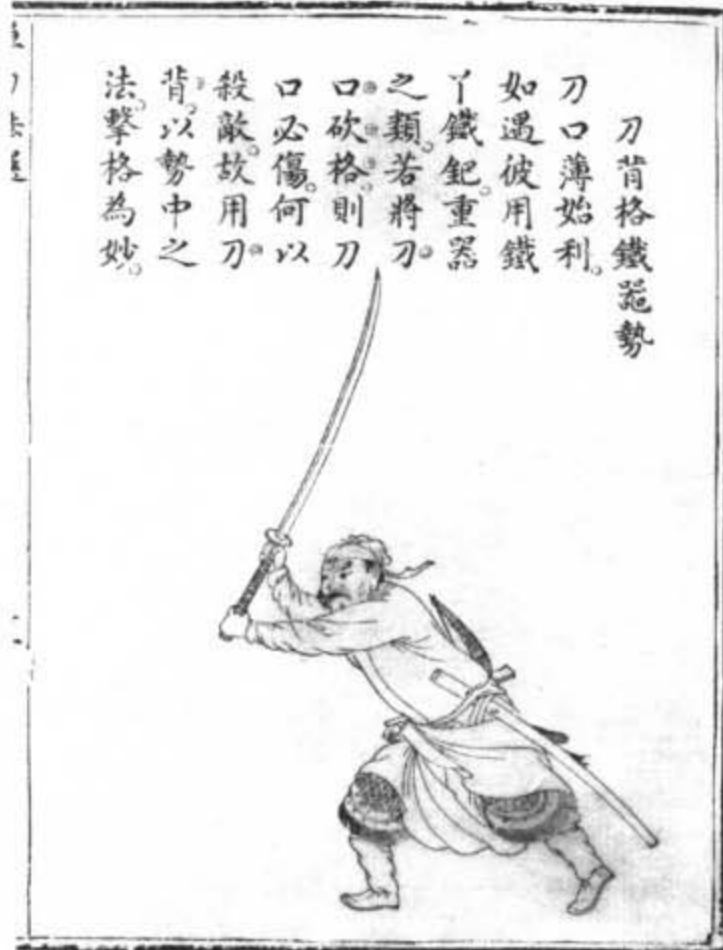 刀背格鐵器勢
刀口薄始利。
如遇彼用鐵
丫鐵鈀。重器
之類。若將刀
口砍格。則刀
口必傷。何以
殺敵。故用刀
背。以勢中之
法。擊格為妙。